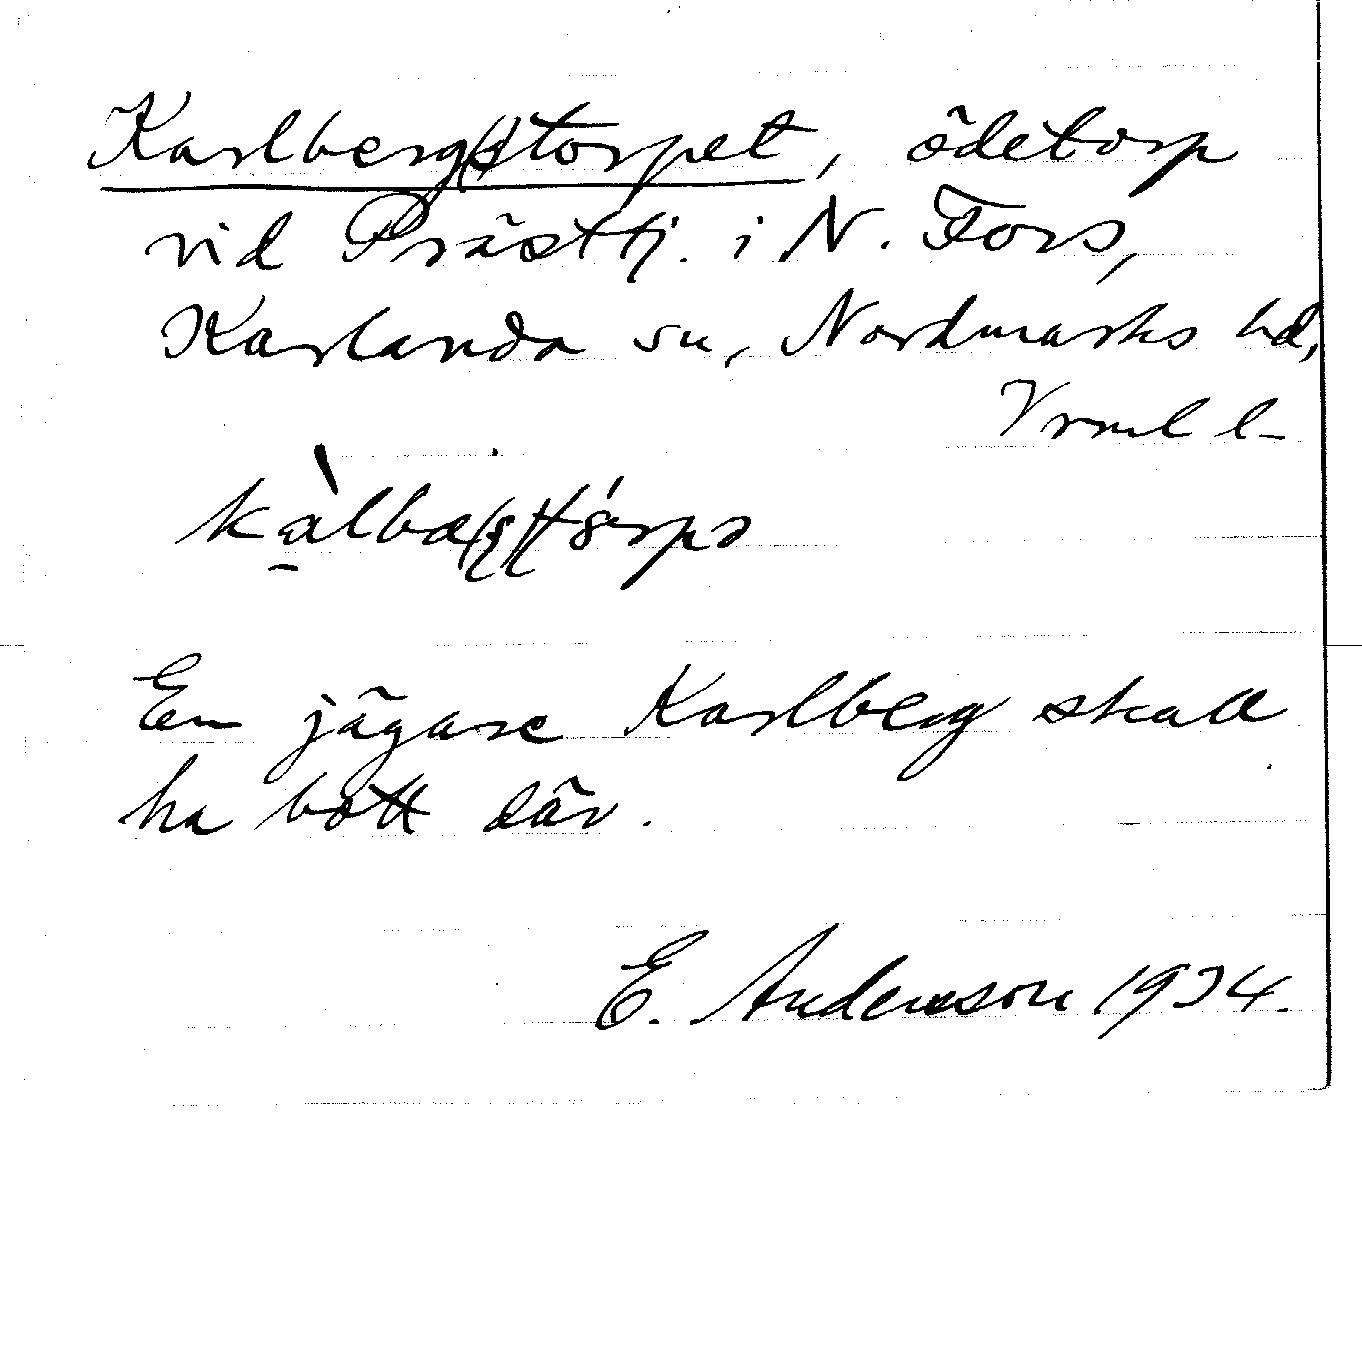 Karlberg(s)torpet, ödetorp
vid Prästtj. i N. Fors,
Karlanda sn, Nordmarks hd,
Vrml l-
En jägare Karlberg skall
ha bott där.
E. Andersson 1934.